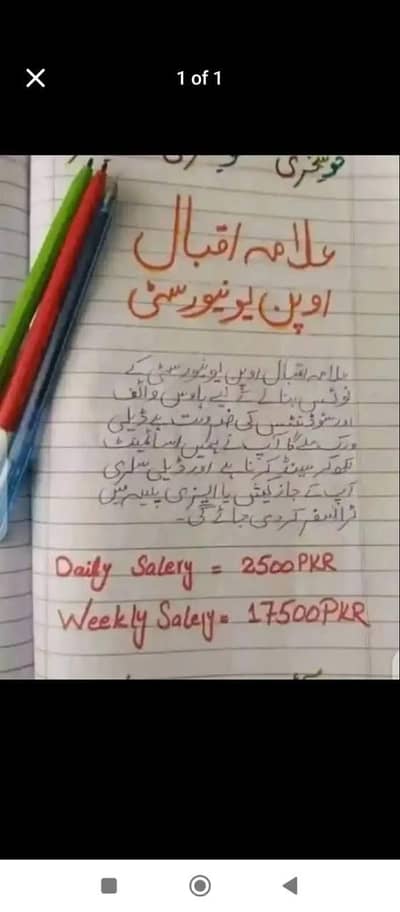 1 of 1
خوشخبری
علامہ اقبال
اوپن یونیورسٹی
علامہ اقبال اوپن یونیورسٹی کے
نوٹس بنانے کے لیے ہاوس وائف
اور سٹوڈنٹس کی ضرورت ہے ڈیلی
ورک ملے گا آپ نے ہمیں اسائمینٹ
لکھ کر سینڈ کرنا ہے اور ڈیلی سلری
آپ کے جاز کیش یا ایزی پیسہ میں
ٹرانسفر کر دی جائے گی۔
Daily Salery = 2500PKR
Weekly Salery = 17500PKR